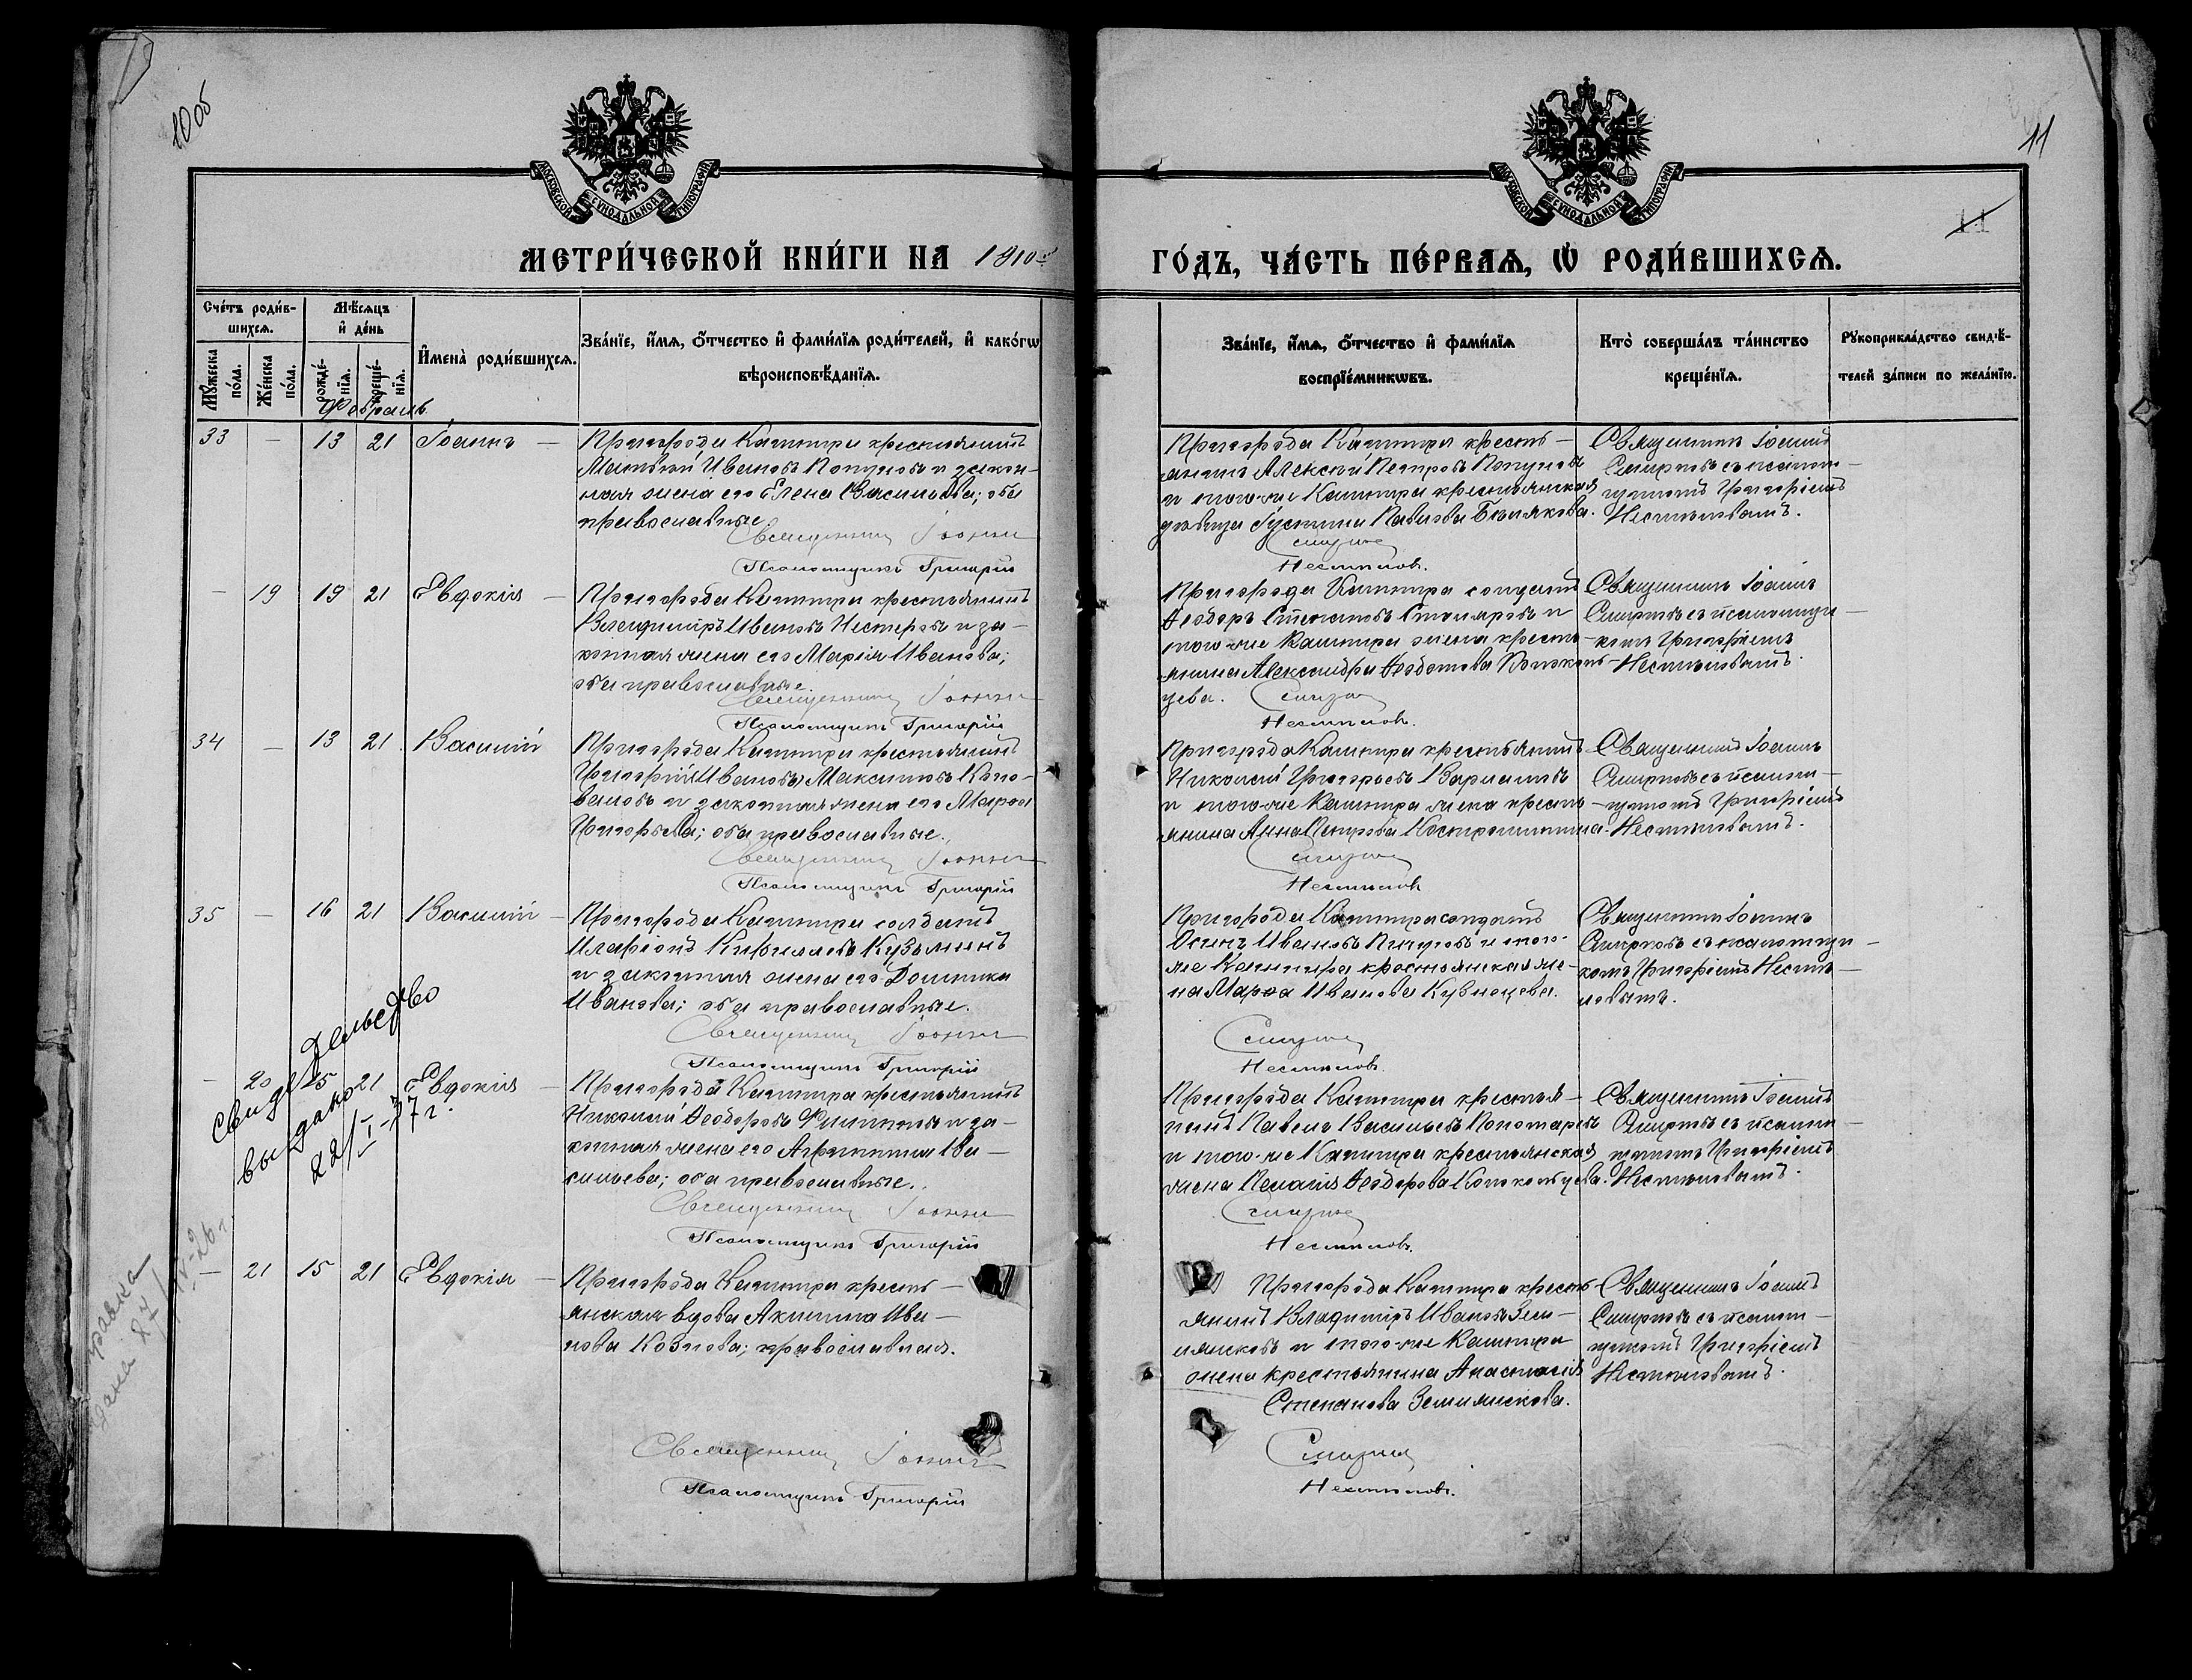 10 об
11
11
МОСКОВСКОЙ СѴНОДАЛЬНОЙ ТИПОГРАФІИ
МОСКОВСКОЙ СѴНОДАЛЬНОЙ ТИПОГРАФІИ
МЕТРИ́ЧЕСКОЙ КНИ́ГИ НА 1910 г.
ГО́ДЪ, ЧА́СТЬ ПЕ́РВАѦ, Ѡ҆ РОДИ́ВШИХСѦ.
Сче́тъ роди́в-
шихсѧ.
Мꙋ́жеска по́ла.
Же́нска по́ла.
Мѣ́сѧцъ
и҆ де́нь
рожде́-
нїѧ.
креще́-
нїѧ.
И҆мена̀ роди́вшихсѧ.
Зва́нїе, и҆́мѧ, ѻ҆́тчество и҆ фами́лїѧ роди́телей, и҆ како́гѡ
вѣроисповѣ́данїѧ.
Зва́нїе, и҆́мѧ, ѻ҆́тчество и҆ фами́лїѧ
воспрїе́мникѡвъ.
Кто̀ соверша́лъ та́инство
креще́нїѧ.
Рꙋкоприкла́дство свидѣ́-
телей за́писи по жела́нїю.
Февраль
33 — 13 21 Іоаннъ —
Пригорода Кашпира крестьянинъ
Матвѣй Ивановъ Попуновъ и закон-
ная жена его Елена Васильева; оба
православные
Священникъ Іоаннъ
Псаломщикъ Григорій
Пригорода Кашпира кресть-
янинъ Алексѣй Петровъ Попуновъ
и того-же Кашпира крестьянская
дѣвица Іустина Павлова Бѣлякова.
Смирновъ
Нестыловъ.
Священникъ Іоаннъ
Смирновъ съ псалом-
щикомъ Григоріемъ
Нестыловымъ.
— 19 19 21 Евдокія —
Пригорода Кашпира крестьянинъ
Владиміръ Ивановъ Нестеровъ и за-
конная жена его Марія Иванова;
оба православные.
Священникъ Іоаннъ
Псаломщикъ Григорій
Пригорода Кашпира солдатъ
Ѳеодоръ Степановъ Столяровъ и
того-же Кашпира жена кресть-
янина Александра Ѳеодотова Колоколь-
цева. Смирновъ
Нестыловъ.
Священникъ Іоаннъ
Смирновъ съ псаломщи-
комъ Григоріемъ
Нестыловымъ.
34 — 13 21 Василій
Пригорода Кашпира крестьянинъ
Григорій Ивановъ Максимовъ Коно-
валовъ и законная жена его Марѳа
Григорьева; оба православные.
Священникъ Іоаннъ
Псаломщикъ Григорій
Пригорода Кашпира крестьянинъ
Николай Григорьевъ Варламовъ
и того-же Кашпира жена кресть-
янина Анна Петрова Костромитина.
Смирновъ
Нестыловъ
Священникъ Іоаннъ
Смирновъ съ псалом-
щикомъ Григоріемъ
Нестыловымъ.
35 — 16 21 Василій —
Пригорода Кашпира солдатъ
Иларіонъ Кузьминъ
и законная жена его Домника
Иванова; оба православные.
Священникъ Іоаннъ
Псаломщикъ Григорій
Пригорода Кашпира солдатъ
Осипъ Ивановъ Пичуговъ и того-
же Кашпира крестьянская же-
на Марѳа Иванова Кузнецова.
Смирновъ
Нестыловъ.
Священникъ Іоаннъ
Смирновъ съ псаломщи-
комъ Григоріемъ Несты-
ловымъ.
Свидетельство
выдано
22/I-37 г.
— 20 15 21 Евдокія —
Пригорода Кашпира крестьянинъ
Николай Ѳеодоровъ Филипповъ и за-
конная жена его Агриппина Ва-
сильева; оба православные.
Священникъ Іоаннъ
Псаломщикъ Григорій
Пригорода Кашпира крестья-
нинъ Павелъ Васильевъ Пономаревъ
и того-же Кашпира крестьянская
жена Пелагія Ѳеодорова Колокольцева.
Смирновъ
Нестыловъ.
Священникъ Іоаннъ
Смирновъ съ псалом-
щикомъ Григоріемъ
Нестыловымъ.
справка
дана 27/IV-26 г.
— 21 15 21 Евдокія —
Пригорода Кашпира кресть-
янская вдова Акилина Ива-
нова Козлова; православная.
Священникъ Іоаннъ
Псаломщикъ Григорій
Пригорода Кашпира кресть-
янинъ Владиміръ Ивановъ Зем-
лянсковъ и того-же Кашпира
жена крестьянина Анастасія
Степанова Землянскова.
Смирновъ
Нестыловъ.
Священникъ Іоаннъ
Смирновъ съ псалом-
щикомъ Григоріемъ
Нестыловымъ.